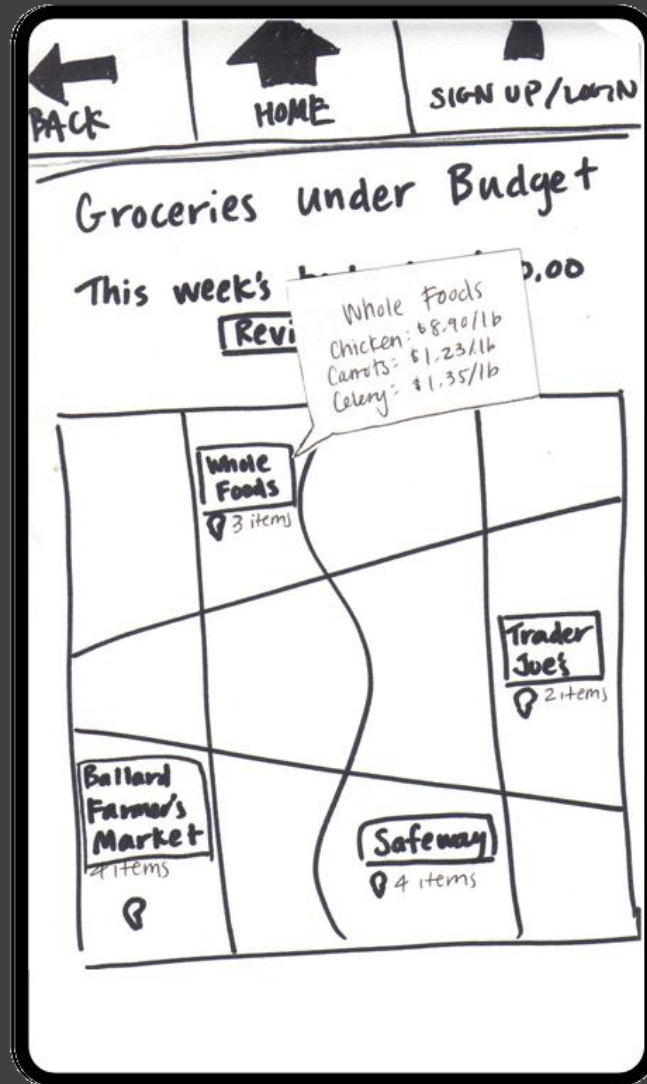 BACK
HOME
SIGN UP/LOGIN
Groceries under Budget
This week's 0.00
Revi
Whole Foods
Chicken: $8.90/lb
Carrots: $1.23/lb
Celery: $1.35/lb
Whole
Foods
3 items
Trader
Joe's
2 items
Ballard
Farmer's
Market
4 items
Safeway
4 items